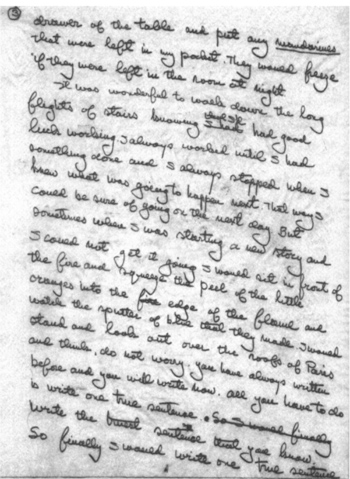 ③
drawer of the table and put any mandarines
that were left in my pocket. They would freeze
if they were left in the room at night
It was wonderful to walk down the long
flights of stairs knowing that I had had good
luck working. I always worked until I had
something done and I always stopped when I
knew what was going to happen next. That way I
could be sure of going on the next day. But
sometimes when I was starting a new story and
I could not get it going I would sit in front of
the fire and squeeze the peel of the little
oranges into the edge of the flame and
watch the sputter of blue that they made. I would
stand and look out over the roofs of Paris
and think, do not worry. You have always written
before and you will write now. All you have to do
is write one true sentence. So I would finally
write the truest sentence that you know.
So finally I would write one true sentence